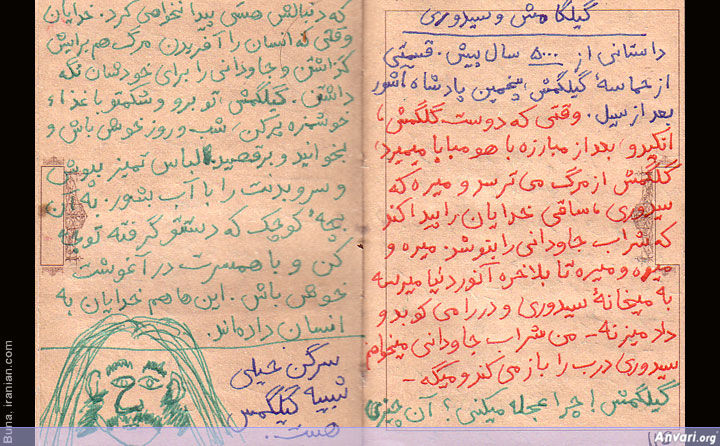 گیلگامش و سیدوری
داستانی از ۵۰۰۰ سال پیش. قسمتی
از حماسهٔ گیلگمش، پنجمین پادشاه اشور
بعد از سیل. وقتی که دوست گلگمش،
انکیدو، بعد از مبارزه با هومبابا میمیرد،
گلگمش از مرگ می ترسد و میره که
سیدوری، ساقی خدایان را پیدا کند
که شراب جاودانی را بنوشد. میره و
میره و میره تا بلاخره آنور دنیا میرسه
به میخانهٔ سیدوری و در را می کوبد و
داد میزنه - من شراب جاودانی میخوام
سیدوری درب را باز می کند و میگه -
گیلگمش! چرا عجله میکنی؟ آن چیزی
که دنبالش هستی پیدا نخواهی کرد. خدایان
وقتی که انسان را آفریدن مرگ هم برایش
گذاشتن و جاودانی را برای خودشان نگه
داشتن. گیلگمش، تو برو و شکمتو با غذاء
خوشمزه پر کن، شب و روز خوش باش و
بخوانید و برقصید. لباس تمیز بپوش
و سر و بدنت را با آب بشور. به آن
بچهٔ کوچک که دستتو گرفته توجه
کن و با همسرت در آغوشت
خوش باش. این ها هم خدایان به
انسان داده اند.
سرگن خیلی
شبیه گیلگمش
هست.
Buna. iranian.com
Anvari.org